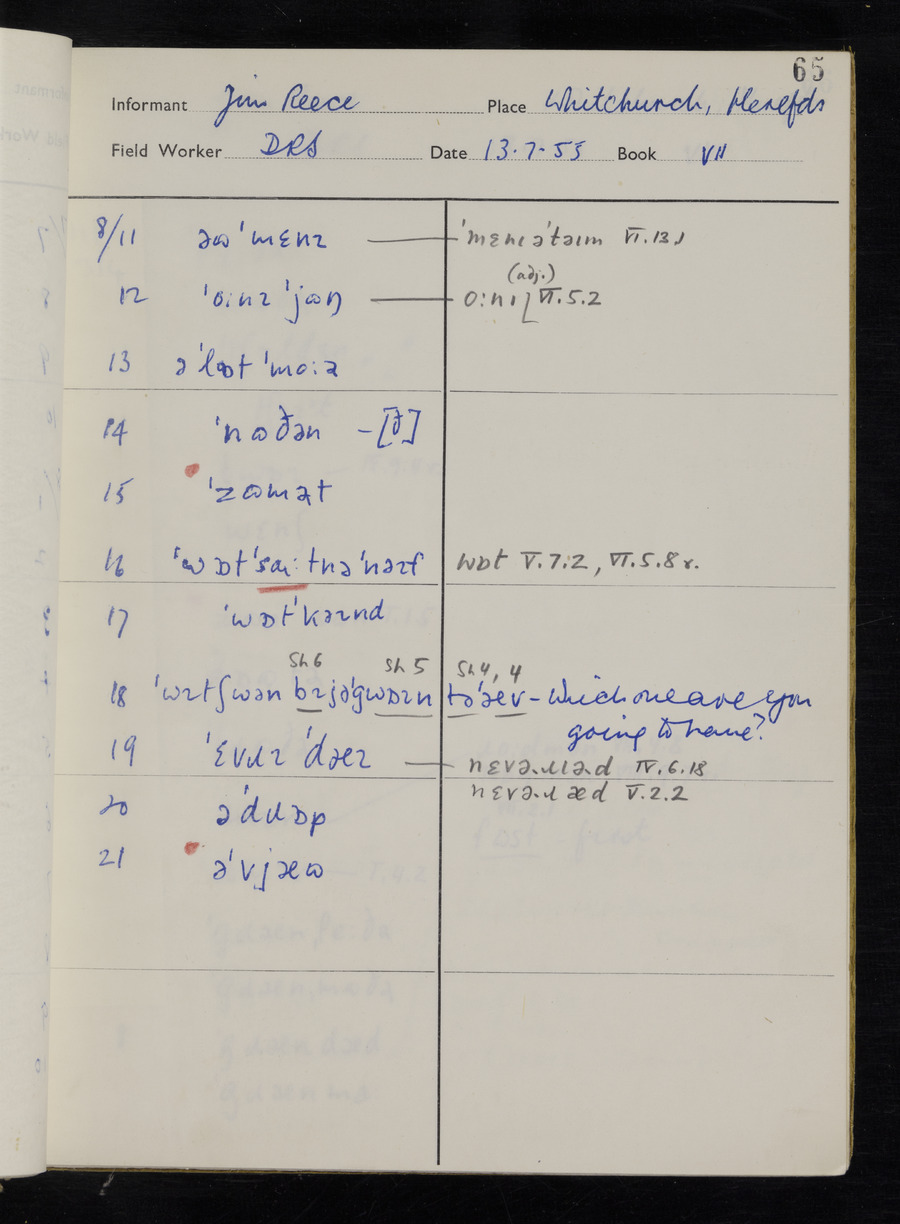 65
Informant Jim Reece Place Whitchurch, Herefds
Field Worker DRS Date 13.7.55 Book VII
8/11 əɷˈmɛnɪ ˈmɛnɪəˈtaɪm VI.13.1
(adj.)
12 ˈoːnɪ ˈjɷŋ oːnɪ VI.5.2
13 əˈlɒt ˈmɔːə
14 ˈnɷðən –[ð̄]
15 ˈzɷmət
16 ˈwɒtˈsaɪːtnəˈnəɪf wɒt V.7.2, VI.5.8 r.
17 ˈwɒtˈkəɪnd
Sh 6 Sh 5 Sh 4, 4
18 ˈwɪtʃwən bɪjəˈgwɒɪn təˈæv – which one are you
going to have?
19 ˈɛvɹɪ ˈdæɪ nɛvəɹɪəd IV.6.18
nɛvəɹæd V.2.2
20 əˈdɹɒp
21 əˈvjæɷ